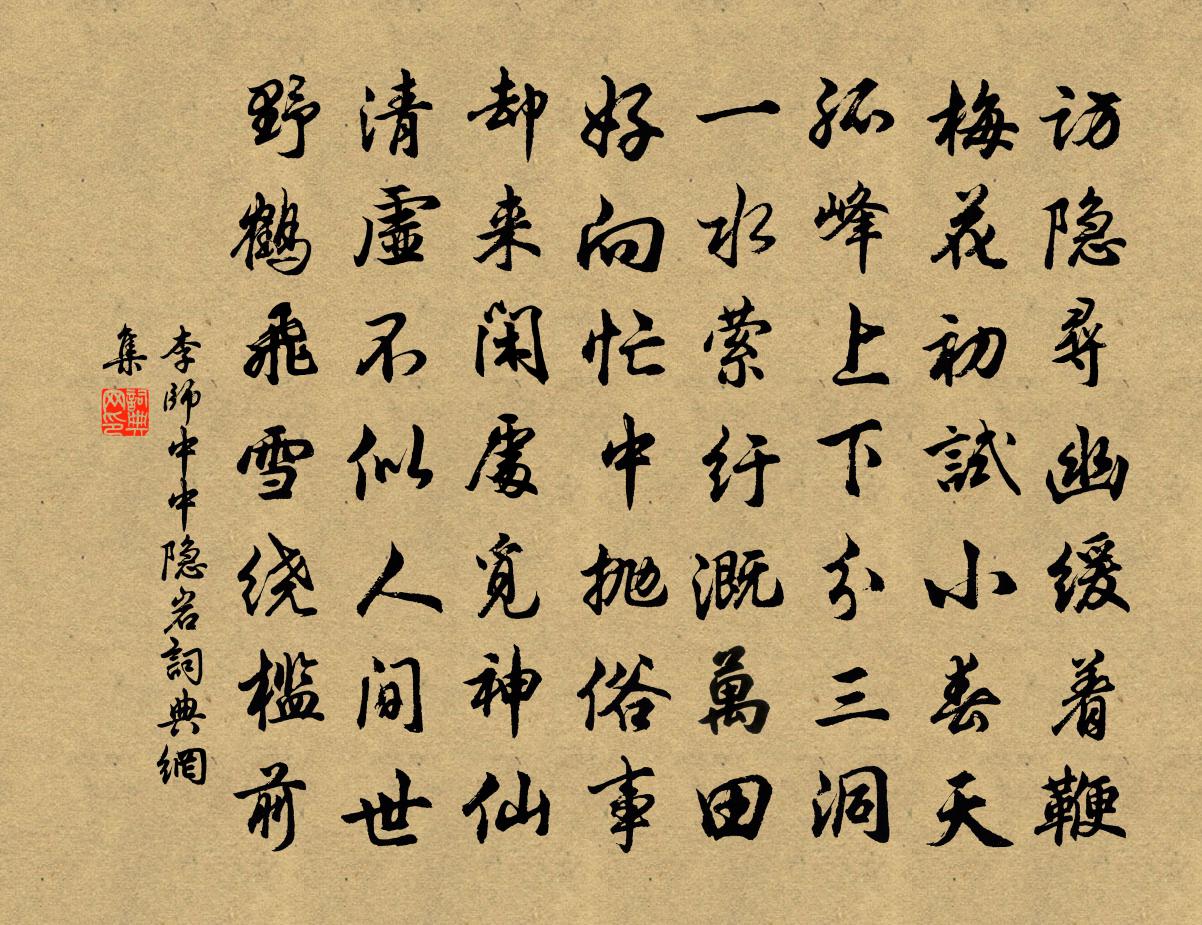 访隐寻幽缓着鞭
梅花初試小春天
孤峰上下分三洞
一水萦纡溉萬田
好向忙中抛俗事
却来闲處觅神仙
清虚不似人间世
野鹤飛雪绕槛前
李師中中隐岩詞典網
集
詞典网印